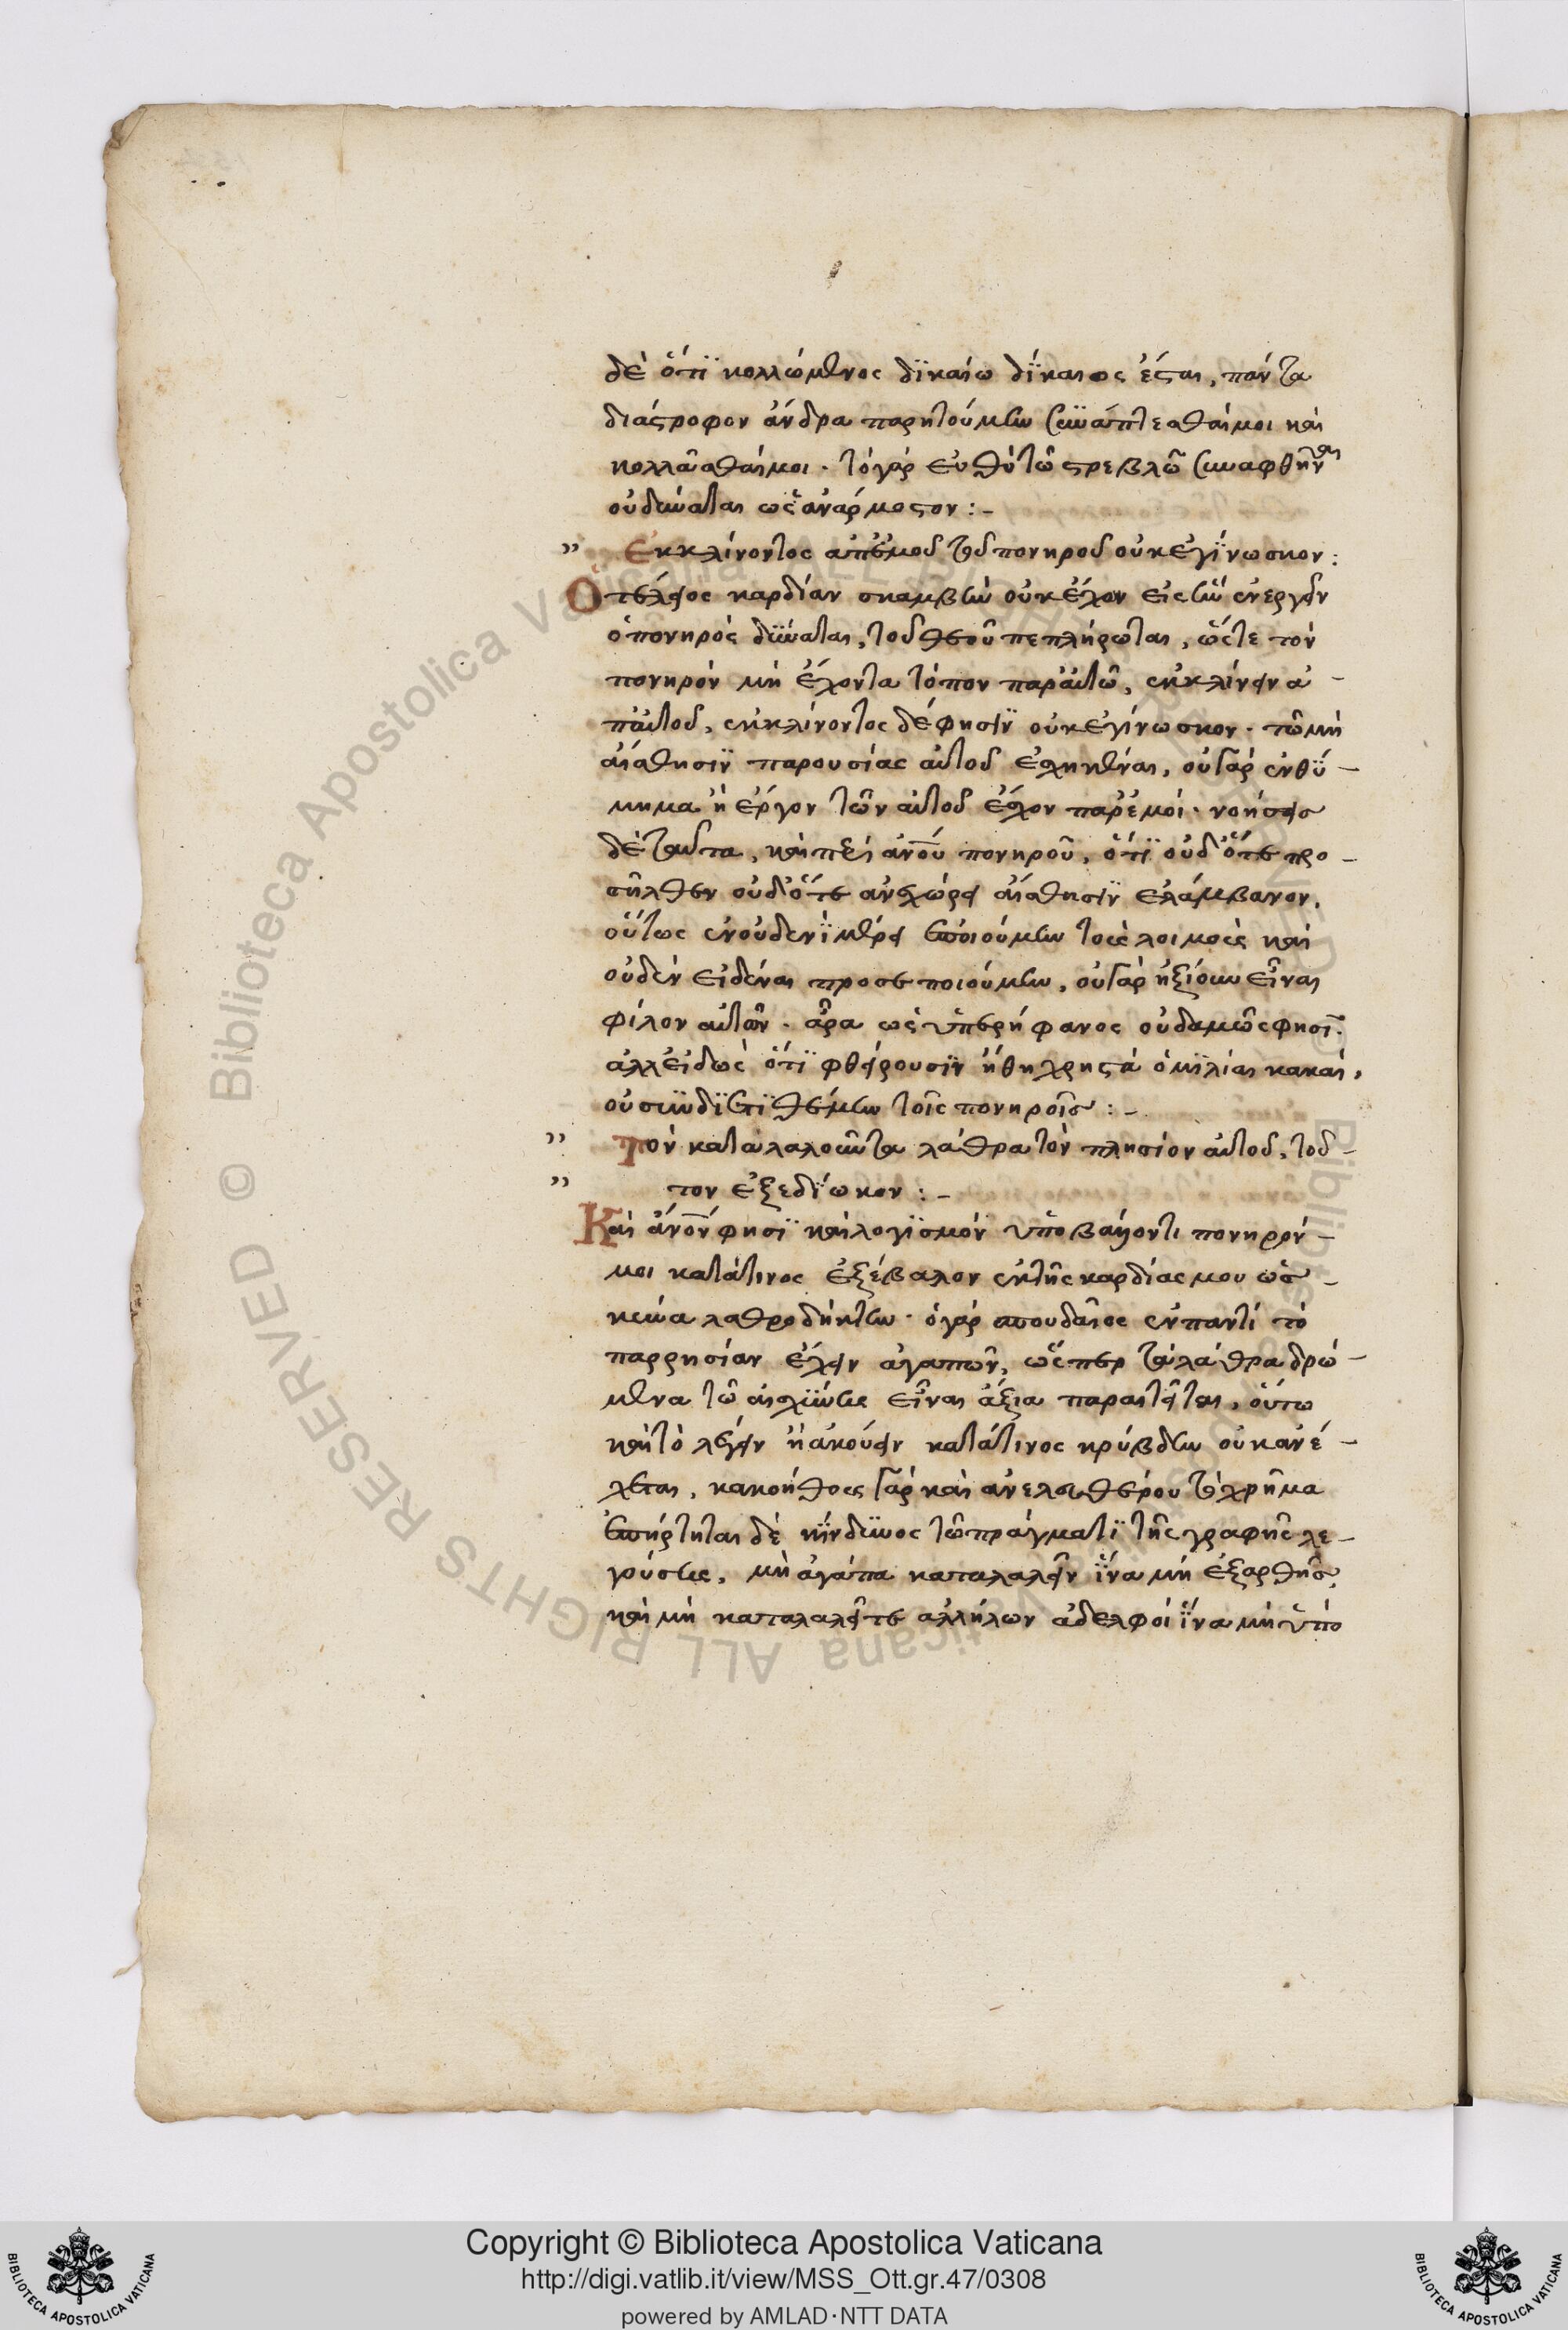 δὲ ὅτϊ κολλώμενος δϊκαίω δίκαιος ἔσται, πάντα
διάστροφον ἄνδρα παρητούμην συνάπτεσθαί μοι καὶ
κολλᾶσθαί μοι· τὸ γὰρ εὐθὺ τῶ στρεβλῶ συναφθῆναι
οὐ δύναται ὡς ἀνάρμοστον :-
" Ἐκκλίνοντος ἀπ' ἐμοῦ τοῦ πονηροῦ οὐκ ἐγίνωσκον :
Ὁ τέλειος καρδίαν σκαμβὴν οὐκ ἔχων εἰς ἣν ἐνεργεῖν
ὁ πονηρὸς δύναται, τοῦ θεοῦ πεπλήρωται, ὥστε τὸν
πονηρὸν μὴ ἔχοντα τόπον παρ' αὐτῶ, ἐκκλίνειν ἀ-
π' αὐτοῦ, ἐκκλίνοντος δέ φησϊν οὐκ ἐγίνωσκον· τῶ μὴ
αἴσθησϊν παρουσίας αὐτοῦ ἐσχηκέναι, οὐ γὰρ ἐνθύ-
μημα ἢ ἔργον τῶν αὐτοῦ ἔσχον παρ' ἐμοί· νοήσεις
δὲ ταῦτα, καὶ περὶ ἀνου πονηροῦ, ὅτϊ οὐδ' ὅτε προ-
σῆλθεν οὐδ' ὅτε ἀνεχώρει αἴσθησϊν ἐλάμβανον,
οὕτως ἐν οὐδενὶ μέρει ἐποιούμην τοὺς λοιμοὺς καὶ
οὐδὲν εἰδέναι προσεποιούμην, οὐ γὰρ ἠξίουν εἶναι
φίλον αὐτῶν· ἆρα ὡς ὑπερήφανος οὐδαμῶς φησί·
ἀλλ' εἰδὼς ὅτϊ φθείρουσϊν ἤθη χρηστὰ ὁμϊλίαι κακαί,
οὐ συνδϊετϊθέμην τοῖς πονηροῖς :-
" Τὸν καταλαλοῦντα λάθρα τὸν πλησίον αὐτοῦ, τοῦ-
" τον ἐξεδίωκον :-
Καὶ ἀνον φησϊ καὶ λογϊσμὸν ὑποβάλλοντι πονηρόν
μοι κατά τινος ἐξέβαλον ἐκ τῆς καρδίας μου ὡς
κύνα λαθροδήκτην· ὁ γὰρ σπουδαῖος ἐν παντὶ τὸ
παρρησίαν ἔχειν ἀγαπῶν, ὥσπερ τὰ λάθρα δρώ-
μενα τῶ αἰσχύνης εἶναι ἄξια παραιτεῖται, οὕτω
καὶ τὸ λέγειν ἢ ἀκούειν κατά τινος κρύβδην οὐκ ἀνέ-
χεται, κακοήθους γὰρ καὶ ἀνελευθέρου τὸ χρῆμα
ἐπήρτηται δὲ κίνδυνος τῶ πράγματϊ τῆς γραφῆς λε-
γούσης, μὴ ἀγάπα καταλαλεῖν ἵνα μὴ ἐξαρθῆς,
καὶ μὴ καταλαλεῖτε ἀλλήλων ἀδελφοὶ ἵνα μὴ ὑπὸ
Copyright © Biblioteca Apostolica Vaticana
http://digi.vatlib.it/view/MSS_Ott.gr.47/0308
powered by AMLAD·NTT DATA